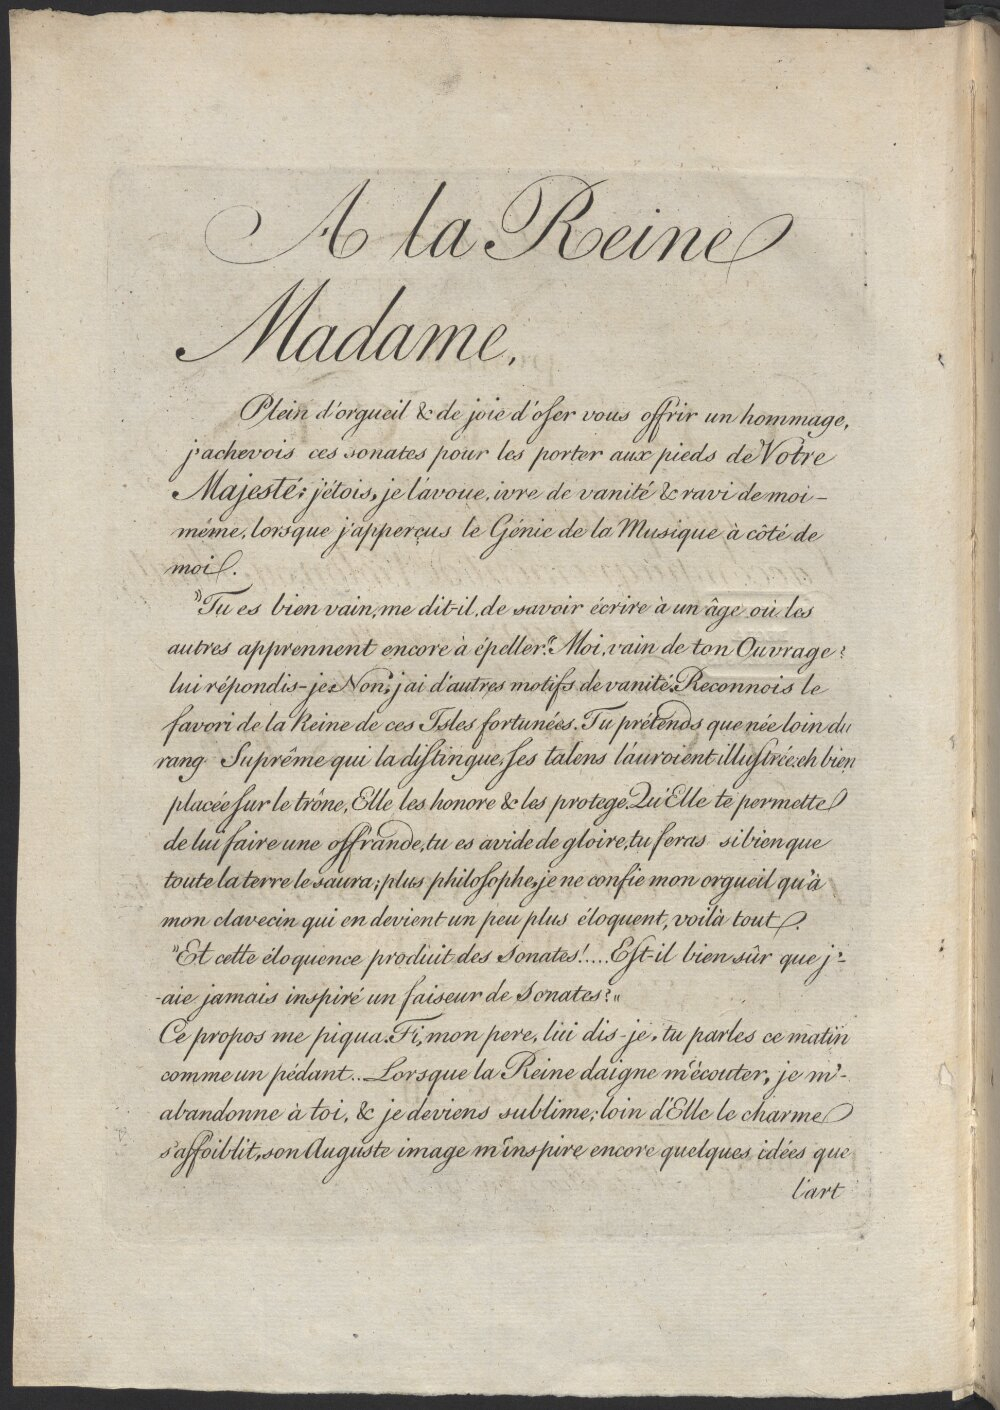 A la Reine
Madame,
Plein d'orgueil & de joie d'oser vous offrir un hommage,
j'achevois ces sonates pour les porter aux pieds de Votre
Majesté; j'étois, je l'avoue, ivre de vanité & ravi de moi-
même, lorsque j'apperçus le Génie de la Musique à côté de
moi.
"Tu es bien vain, me dit-il, de savoir écrire à un âge où les
autres apprennent encore à épeller." Moi, vain de ton Ouvrage?
lui répondis-je. Non, j'ai d'autres motifs de vanité. Reconnois le
favori de la Reine de ces Isles fortunées. Tu prétends que née loin du
rang Suprême qui la distingue, ses talens l'auroient illustrée: eh bien
placée sur le trône, Elle les honore & les protege. Qu'Elle te permette
de lui faire une offrande, tu es avide de gloire, tu feras si bien que
toute la terre le saura; plus philosophe, je ne confie mon orgueil qu'à
mon clavecin qui en devient un peu plus éloquent, voilà tout.
"Et cette éloquence produit des Sonates!.... Est-il bien sûr que j'-
-aie jamais inspiré un faiseur de Sonates?"
Ce propos me piqua. Fi, mon pere, lui dis-je, tu parles ce matin
comme un pédant... Lorsque la Reine daigne m'écouter, je m'-
abandonne à toi, & je deviens sublime; loin d'Elle le charme
s'affoiblit, son Auguste image m'inspire encore quelques idées que
l'art